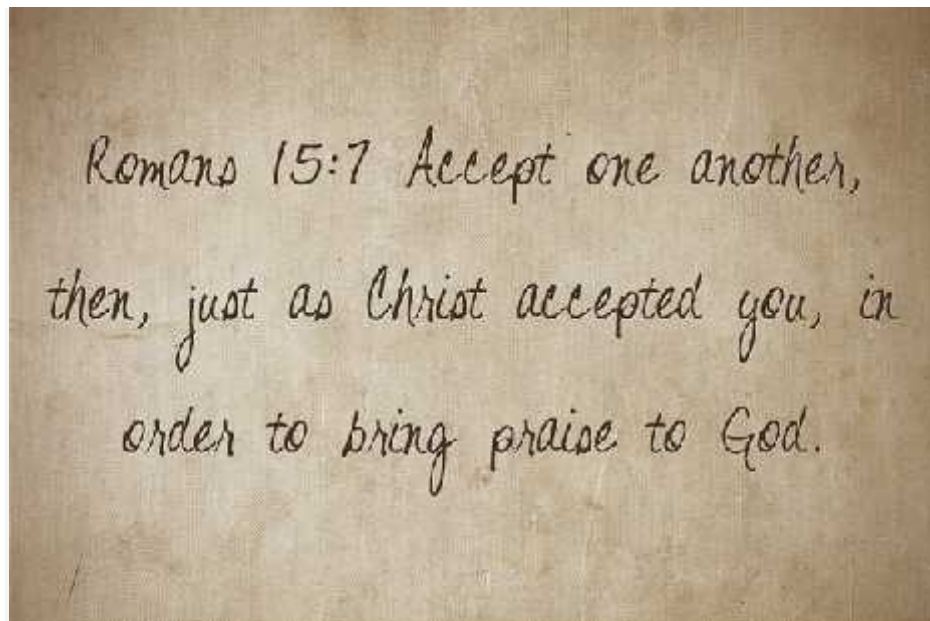 Romans 15:7 Accept one another,
then, just as Christ accepted you, in
order to bring praise to God.